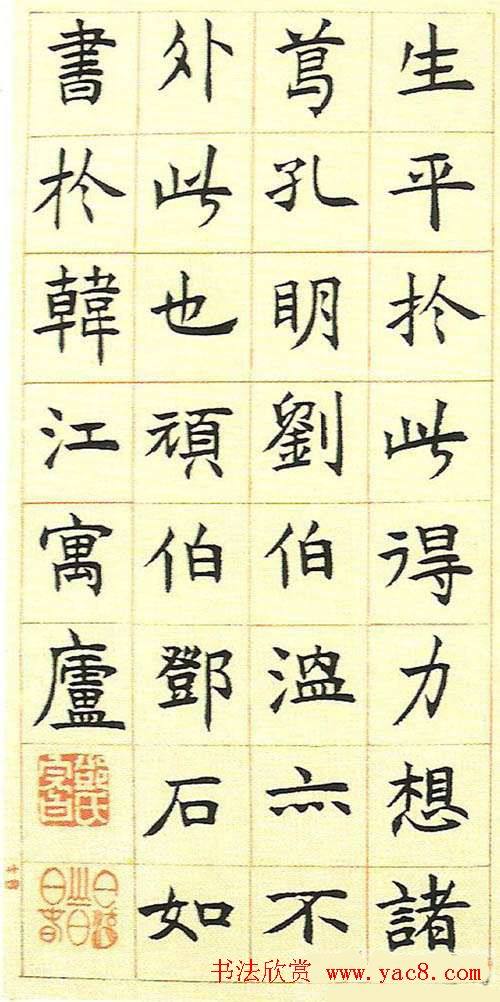 生平扵此得力想諸
葛孔明劉伯溫亦不
外此也頑伯鄧石如
書扵韓江寓廬
书法欣赏 www.yac8.com